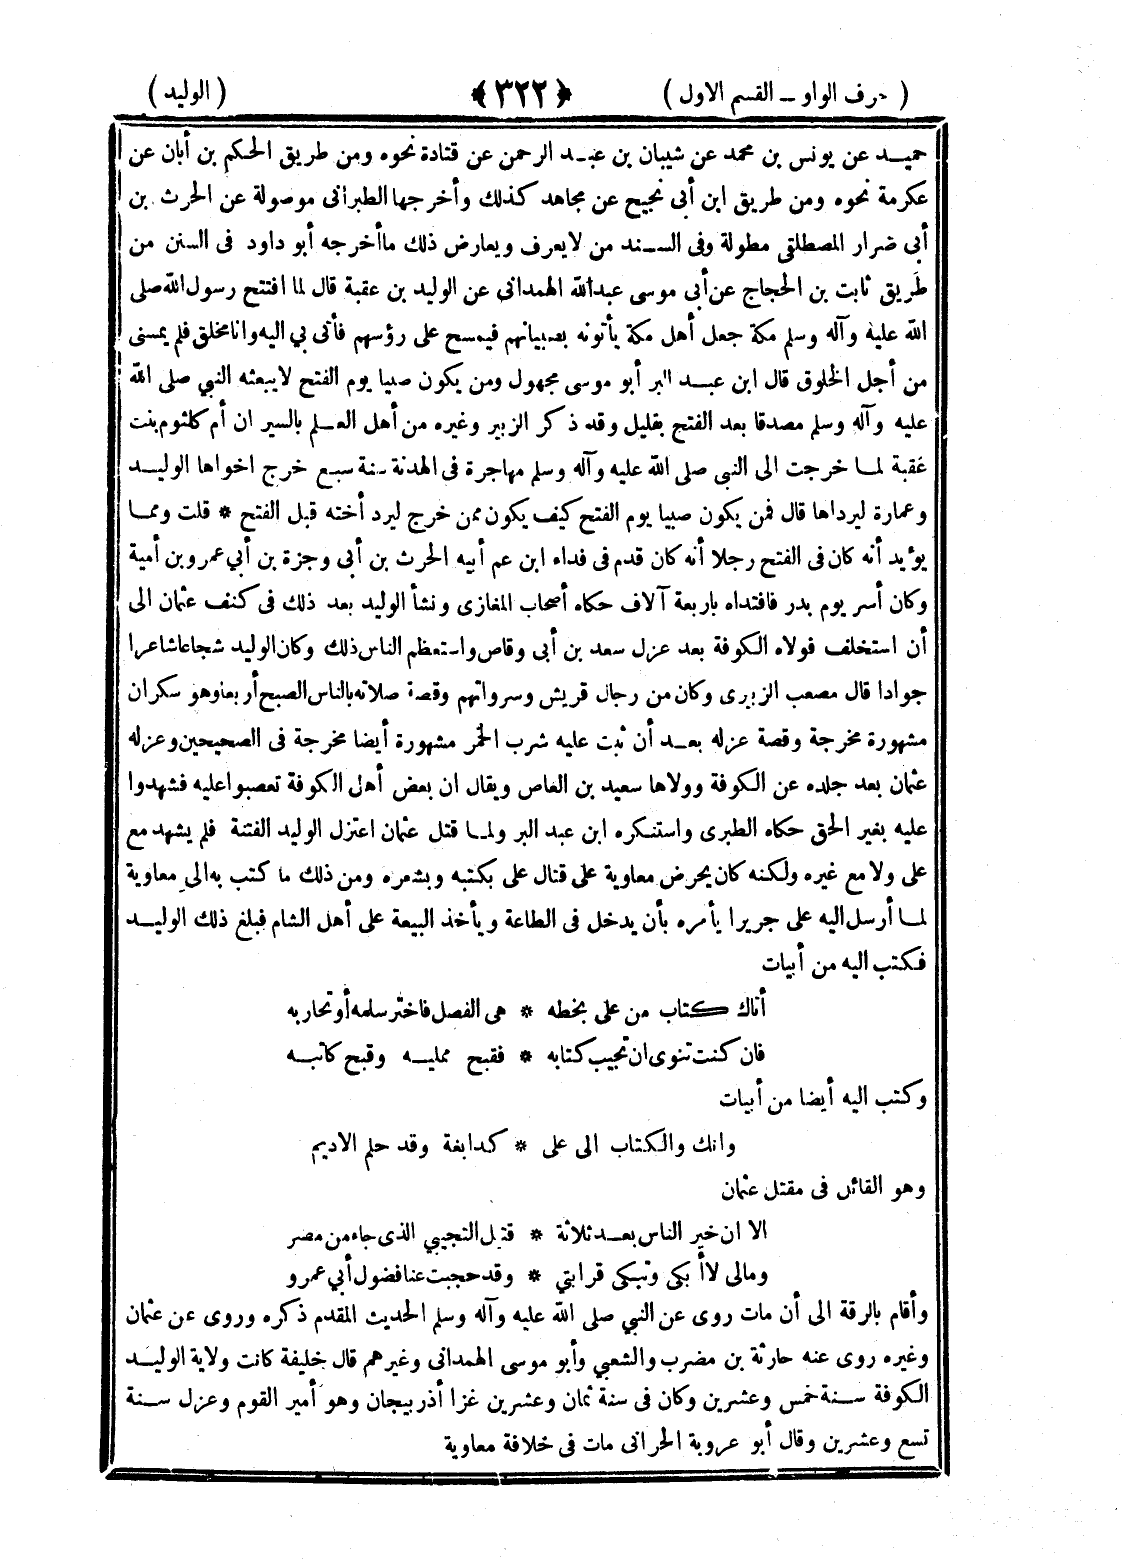 ( حرف الواو ــ القسم الاول ) ﴿ ٣٢٢ ﴾ ( الوليد )
حميد عن يونس بن محمد عن شيبان بن عبد الرحمن عن قتادة نحوه ومن طريق الحكم بن أبان عن
عكرمة نحوه ومن طريق ابن أبى نجيح عن مجاهد كذلك وأخرجها الطبرانى موصولة عن الحرث بن
أبى ضرار المصطلقى مطولة وفى السند من لايعرف ويعارض ذلك ماأخرجه أبو داود فى السنن من
طريق ثابت بن الحجاج عن أبى موسى عبدالله الهمدانى عن الوليد بن عقبة قال لما افتتح رسول الله صلى
الله عليه وآله وسلم مكة جعل أهل مكة يأتونه بصبيانهم فيمسح على رؤسهم فأتى بي اليه وانا مخلق فلم يمسنى
من أجل الخلوق قال ابن عبد البر أبو موسى مجهول ومن يكون صبيا يوم الفتح لايبعثه النبي صلى الله
عليه وآله وسلم مصدقا بعد الفتح بقليل وقد ذكر الزبير وغيره من أهل العلم بالسير ان أم كلثوم بنت
عقبة لما خرجت الى النبي صلى الله عليه وآله وسلم مهاجرة فى الهدنة سنة سبع خرج اخواها الوليد
وعمارة ليرداها قال فمن يكون صبيا يوم الفتح كيف يكون ممن خرج ليرد أخته قبل الفتح * قلت ومما
يؤيد أنه كان فى الفتح رجلا أنه كان قدم فى فداء ابن عم أبيه الحرث بن أبى وجزة بن أبي عمرو بن أمية
وكان أسر يوم بدر فافتداه باربعة آلاف حكاه أصحاب المغازى ونشأ الوليد بعد ذلك فى كنف عثمان الى
أن استخلف فولاه الكوفة بعد عزل سعد بن أبى وقاص واستعظم الناس ذلك وكان الوليد شجاعا شاعرا
جوادا قال مصعب الزبيرى وكان من رجال قريش وسرواتهم وقصة صلاته بالناس الصبح أربعا وهو سكران
مشهورة مخرجة وقصة عزله بعد أن ثبت عليه شرب الخمر مشهورة أيضا مخرجة فى الصحيحين وعزله
عثمان بعد جلده عن الكوفة وولاها سعيد بن العاص ويقال ان بعض أهل الكوفة تعصبوا عليه فشهدوا
عليه بغير الحق حكاه الطبرى واستنكره ابن عبد البر ولما قتل عثمان اعتزل الوليد الفتنة فلم يشهد مع
على ولا مع غيره ولكنه كان يحرض معاوية على قتال على بكتبه وبشعره ومن ذلك ما كتب به الى معاوية
لما أرسل اليه على جريرا يأمره بأن يدخل فى الطاعة ويأخذ البيعة على أهل الشام فبلغ ذلك الوليد
فكتب اليه من أبيات
أتاك كتاب من على بخطه * هى الفصل فاختر سلمه أو تحاربه
فان كنت تنوى ان تجيب كتابه * فقبح ممليه وقبح كاتبه
وكتب اليه أيضا من أبيات
وانك والكتاب الى على * كدابغة وقد حلم الاديم
وهو القائل فى مقتل عثمان
الا ان خير الناس بعد ثلاثة * قتيل التجيبي الذى جاء من مصر
ومالى لاأبكى وتبكى قرابتي * وقد حجبت عنا فضول أبي عمرو
وأقام بالرقة الى أن مات روى عن النبي صلى الله عليه وآله وسلم الحديث المقدم ذكره وروى عن عثمان
وغيره روى عنه حارثة بن مضرب والشعبي وأبو موسى الهمدانى وغيرهم قال خليفة كانت ولاية الوليد
الكوفة سنة خمس وعشرين وكان فى سنة ثمان وعشرين غزا أذربيجان وهو أمير القوم وعزل سنة
تسع وعشرين وقال أبو عروبة الحرانى مات فى خلافة معاوية